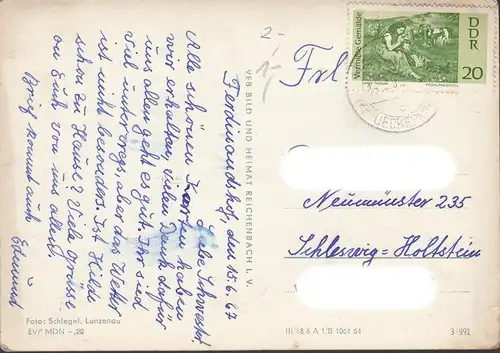 Ferdinandshof, den 15.6.67
Liebe Schwester!
Alle schönen Karten haben
wir erhalten, vielen Dank dafür
uns allen geht es gut. Ihr seid
viel unterwegs, aber das Wetter
ist nicht besonders. Ist Hilde
schon zu Hause? Viele Grüße
an Euch von uns allen.
Brief kommt auch
Foto: Schlegel, Lunzenau
EVP MDN -,20
VEB BILD UND HEIMAT REICHENBACH I. V.
2,-
Frl
Vermißte Gemälde
DDR
20
UECKER
Neumünster 235
Schleswig=Holstein
III/18/6 A 1/B 1064 64
3 991